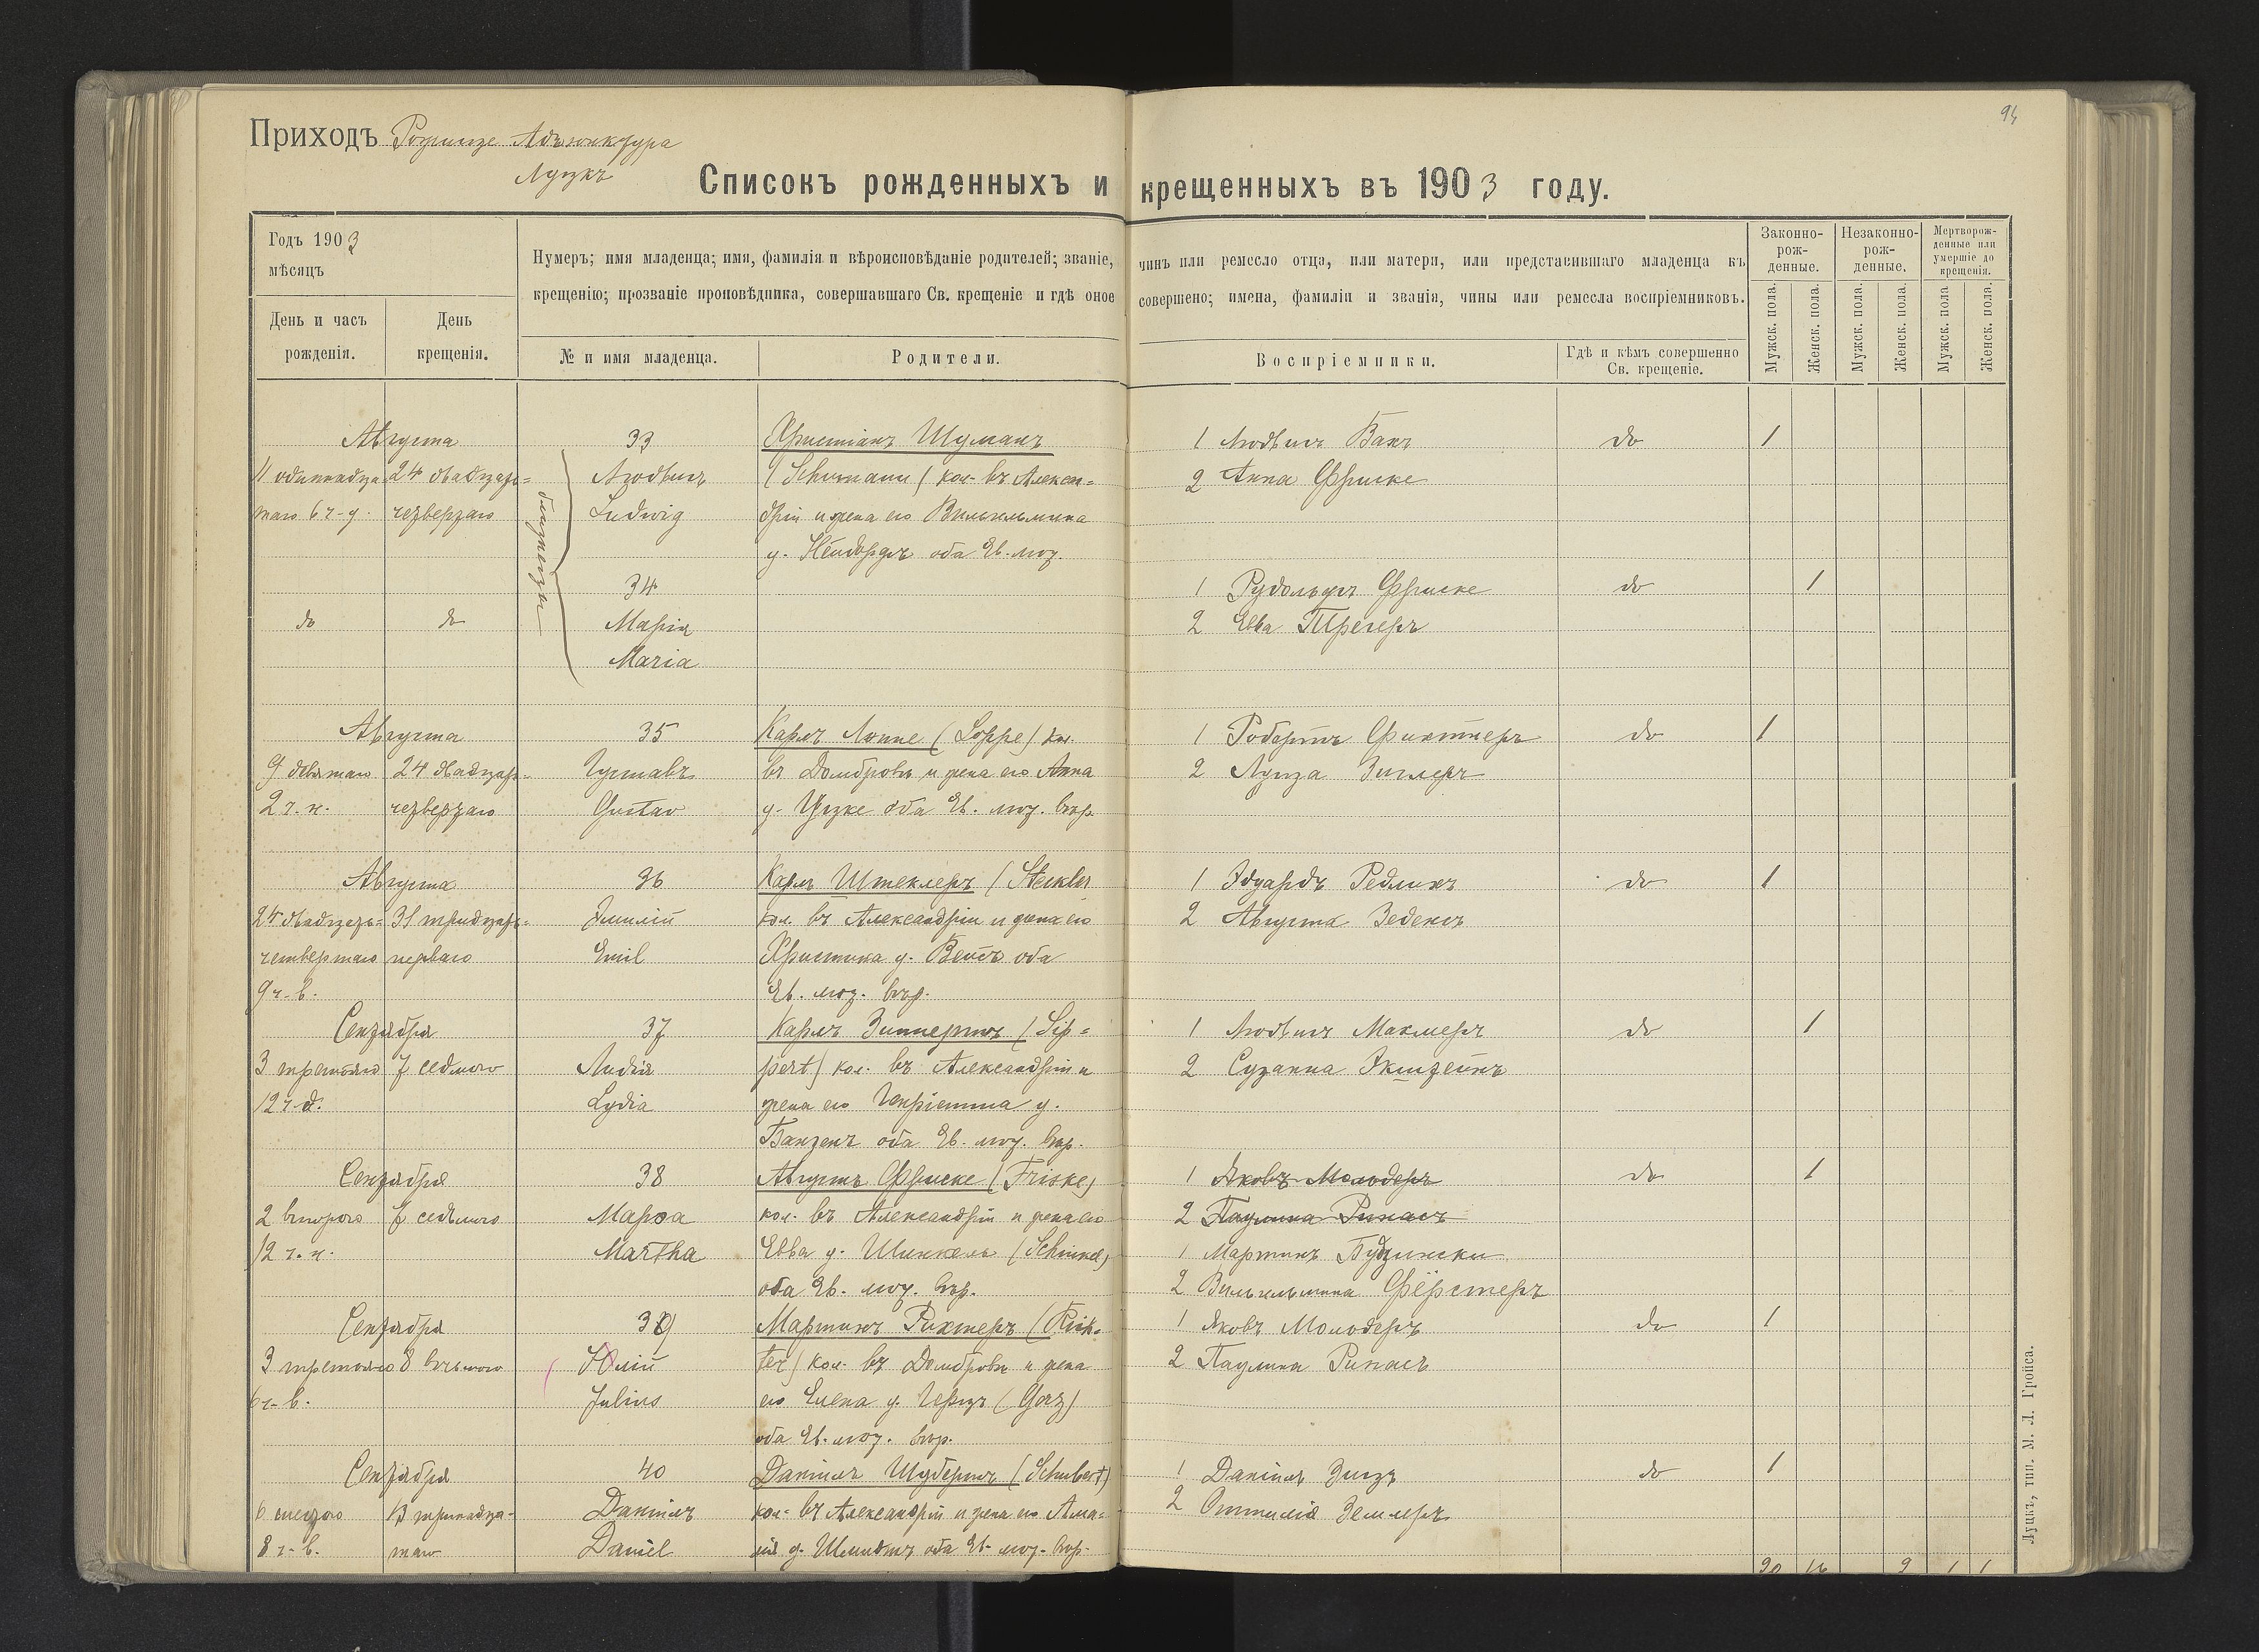 94
Приходъ Рожище Адъюнктура
Луцкъ
Списокъ рожденныхъ и крещенныхъ въ 1903 году.
Годъ 1903
мѣсяцъ
День и часъ рожденія.
День крещенія.
Нумеръ; имя младенца; имя, фамилія и вѣроисповѣданіе родителей; званіе, чинъ или ремесло отца, или матери, или представившаго младенца къ
крещенію; прозваніе проповѣдника, совершавшаго Св. крещеніе и гдѣ оное совершено; имена, фамиліи и званія, чины или ремесла воспріемниковъ.
№ и имя младенца.
Родители.
Воспріемники.
Гдѣ и кѣмъ совершенно Св. крещеніе.
Законно-рож-денные.
Незаконно-рож-денные.
Мертворож-денные или умершіе до крещенія.
Мужск. пола.
Женск. пола.
Мужск. пола.
Женск. пола.
Мужск. пола
Женск. пола.
Августа 33 Христіанъ Шуманъ 1 Людвигъ Банъ do 1
11 одиннадца- 24 двадцать= Людвигъ (Schumann) кол. въ Алексан= 2 Анна Фриске
таго 6 ч. у. четвертаго Ludwig дріи и жена его Вильгельмина
у. Нейдорфъ оба Ев. лют.
близнецы
34 1 Рудольфъ Фриске do 1
do do Марія 2 Евва Трегеръ
Maria
Августа 35 Карлъ Лоппе (Loppe) кол. 1 Робертъ Фихтнеръ do 1
9 девятаго 24 двадцать- Густавъ въ Домбровѣ и жена его Анна 2 Луиза Зиглеръ
2 ч. н. четвертаго Gustav у. Цизке оба Ев. лют. вѣр.
Августа 36 Карлъ Штеклеръ (Steckler 1 Эдуардъ Редлихъ do 1
24 двадцать= 31 тридцать= Эмилій кол. въ Александріи и жена его 2 Августа
четвертаго перваго Emil Христина у. Вейсъ оба
9 ч. в. Ев. лют. вѣр.
Сентября 37 Карлъ Зиппертъ (Sip= 1 Людвигъ Махмеръ do 1
3 третьяго 7 седмого Лидія pert) кол. въ Александріи и 2 Сузанна Экштейнъ
12 ч. д. Lydia жена его Генріетта у.
оба Ев. лют. вѣр.
Сентября 38 Августъ Фриске (Friske) 1 Яковъ Молодеръ do 1
2 второго 7 седьмого Марѳа кол. въ Александріи и жена его 2 Паулина Ринасъ
12 ч. н. Martha Евва у. Шинкель (Schinkel) 1 Мартинъ
оба Ев. лют. вѣр. 2 Вильгельмина Фёрстеръ
Сентября 39 Мартинъ Рихтеръ (Rich= 1 Яковъ Молодеръ do 1
3 третьяго 8 восьмого Юлій ter) кол. въ Домбровѣ и жена 2 Паулина Ринасъ
6 ч. в. Julius его Елена у. Герцъ (Gorz)
оба Ев. лют. вѣр.
Сентября 40 Даніилъ Шубертъ (Schubert) 1 Даніилъ do 1
6 шестого 13 тринадца- Даніилъ кол. въ Александріи и жена его Ама= 2 Оттилія Земмлеръ
8 ч. в. таго Daniel лія у. Шмидтъ оба Ев. лют. вѣр.
Луцкъ, тип. М. Л. Гройса.